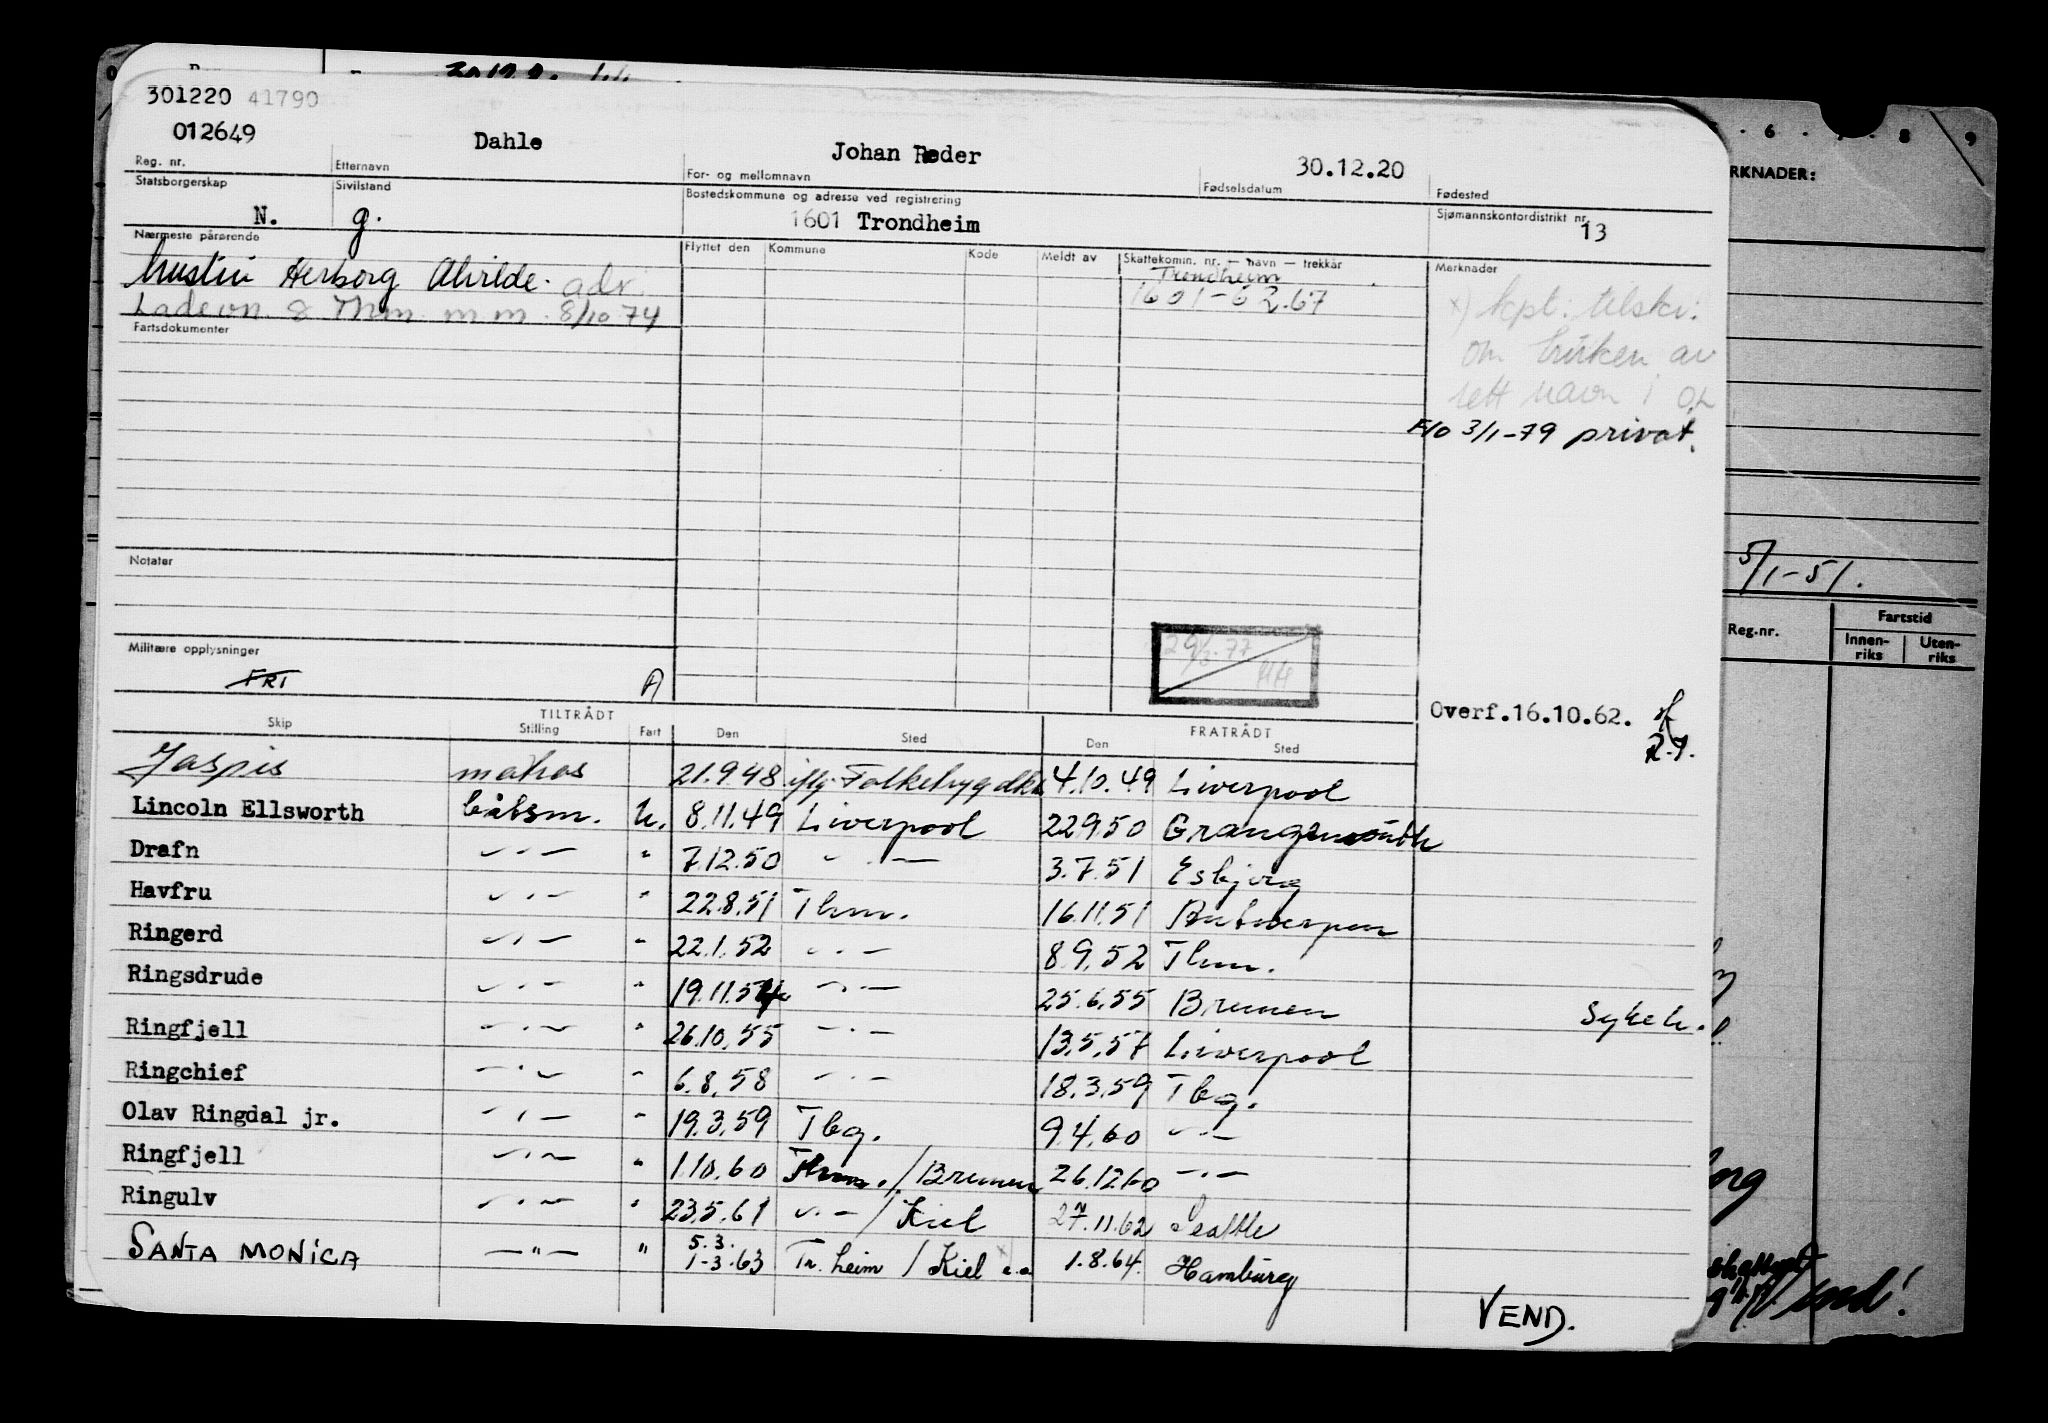 301220 41790
012649
Dahle
Johan Reder
30.12.20
Reg. nr.
Etternavn
For- og mellomnavn
Fødselsdatum
Fødested
Statsborgerskap
Sivilstand
Bostedskommune og adresse ved registrering
Sjømannskontordistrikt nr.
N.
g.
1601 Trondheim
13
Nærmeste pårørende
Flyttet den
Kommune
Kode
Meldt av
Skattekomm. nr. — navn — trekkår
Merknader
Hustru Herborg Alvilde. adr.
Ladevn. 8 Thm. m m. 8/10 74
Trondheim
1601-62.67
x) kpt: tilskr:
om bruken av
rett navn i
F/O 3/1-79 privat.
Fartsdokumenter
Notater
Militære opplysninger
FRI
A
29/3-77
HH
Overf.16.10.62.
TILTRÅDT
FRATRÅDT
Skip
Stilling
Fart
Den
Sted
Den
Sted
Jaspis matros 21.9.48 4.10.49 Liverpool
Lincoln Ellsworth båtsm. U. 8.11.49 Liverpool 22.9.50 Grangemouth
Drafn -"- " 7.12.50 -"- 3.7.51 Esbjerg
Havfru -"- " 22.8.51 Thm. 16.11.51 Antwerpen
Ringerd -"- " 22.1.52 -"- 8.9.52 Thm.
Ringsdrude -"- " 19.11.54 -"- 25.6.55 Bremen Sykeh.
Ringfjell -"- " 26.10.55 -"- 13.5.57 Liverpool
Ringchief -"- " 6.8.58 -"- 18.3.59 Tbg.
Olav Ringdal jr. -"- " 19.3.59 Tbg. 9.4.60 -"-
Ringfjell -"- " 1.10.60 Thm./Bremen 26.12.60 -"-
Ringulv -"- " 23.5.61 -"-/Kiel 27.11.62 Seattle
5.3.
SANTA MONICA -"- " 1-3.63 Tr.heim / Kiel 1.8.64. Hamburg
VEND.
6 7 8 9
RKNADER:
5/1-51.
Reg.nr.
Fartstid
Innen-
riks
Uten-
riks
Vend!